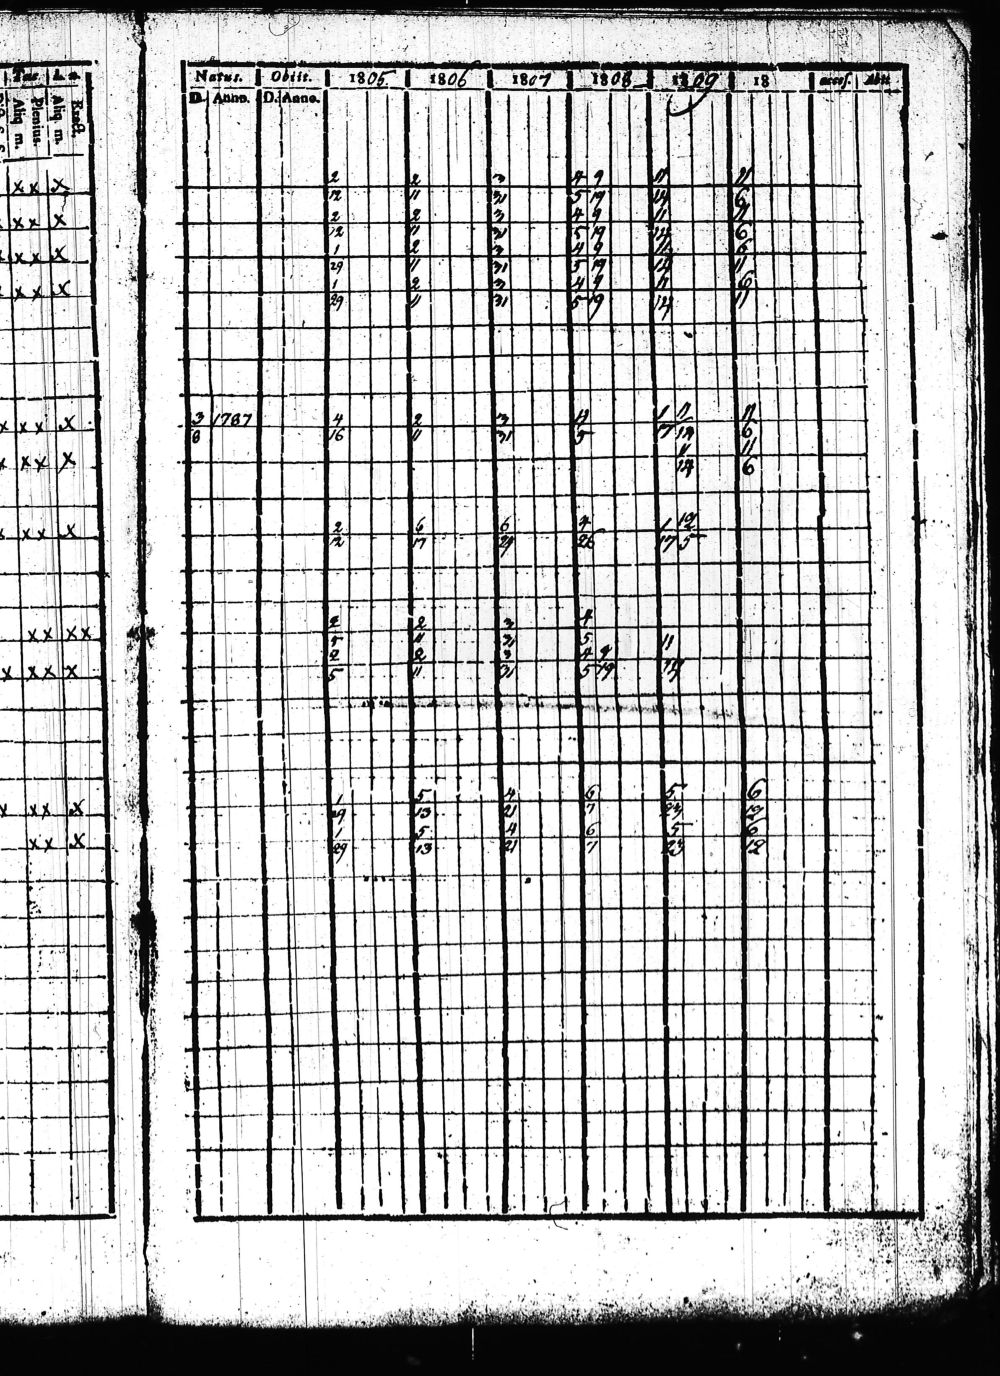 Natus. Obiit. 1805 1806 1807 1808 1809 18 accef. Abit
D. Anno. D. Anno.
Aliq. m. Plenius. Aliq. m. Exact.
x x x 2 2 3 4 9 11 11
12 11 31 5 19 14 6
x x x 2 2 3 4 9 11 11
12 11 31 5 19 14 6
x x x 1 2 3 4 9 11 6
29 11 31 5 19 14 11
x x x 1 2 3 4 9 11 6
29 11 31 5 19 14 11
x x x 3 1787 4 2 3 4 1 11 11
8 16 11 31 5 17 12 6
x x x 11 11
14 6
x x x 2 6 6 4 1 12
12 17 29 26 17 5
x x x x 2 2 3 4
5 11 31 5 11
x x x x 2 2 3 4 9 14
5 11 31 5 19
x x x x 1 5 4 6 5 6
29 13 21 7 23 12
x x x 1 5 4 6 5 6
29 13 21 7 23 12